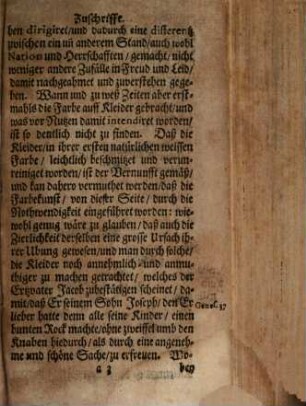 Zuschrifft.
ben dirigiret/und dadurch eine differentz
zwischen ein uñ anderem Stand/auch wohl
Nation und Herrschafften/gemacht/nicht
weniger andere Zufälle in Freud und Leid/
damit nachgeahmet und zuverstehen gege-
ben. Wann und zu weß Zeiten aber erst-
mahls die Farbe auff Kleider gebracht/und
was vor Nutzen damit intendiret worden/
ist so deutlich nicht zu finden. Daß die
Kleider/in ihrer ersten natürlichen weissen
Farbe/leichtlich beschmitzet und verun-
reiniget worden/ist der Vernunfft gemäß/
und kan dahero vermuthet werden/daß die
Farbekunst/von dieser Seite/durch die
Nothwendigkeit eingeführet worden: wie-
wohl genug wäre zu glauben/daß auch die
Zierlichkeit derselben eine grosse Ursach ih-
rer Übung gewesen/und man durch solche/
die Kleider noch annehmlich- und anmu-
thiger zu machen getrachtet/welches der
Ertzvater Jacob zubestätigen scheinet/da-
mit/daß Er seinem Sohn Joseph/den Er
lieber hatte denn alle seine Kinder/einen
Genes. 37
bunten Rock machte/ohne zweiffel umb den
Knaben hiedurch/als durch eine angeneh-
me und schöne Sache/zu erfreuen. Wo-
a 3
bey